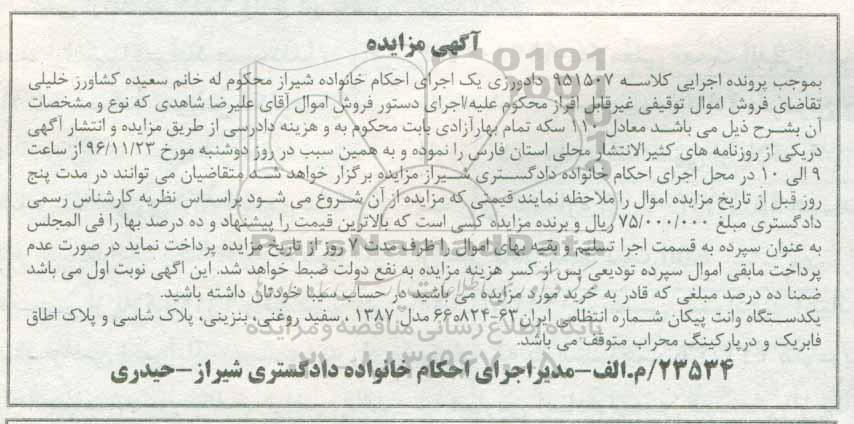 آگهی مزایده
بموجب پرونده اجرایی کلاسه ۹۵۱۵۰۷ دادورزی یک اجرای احکام خانواده شیراز محکوم له خانم سعیده کشاورز خلیلی
تقاضای فروش اموال توقیفی غیرقابل افراز محکوم علیه/اجرای دستور فروش اموال آقای علیرضا شاهدی که نوع و مشخصات
آن بشرح ذیل می باشد معادل ۱۱۰ سکه تمام بهارآزادی بابت محکوم به و هزینه دادرسی از طریق مزایده و انتشار آگهی
دریکی از روزنامه های کثیرالانتشار محلی استان فارس را نموده و به همین سبب در روز دوشنبه مورخ ۹۶/۱۱/۲۳ از ساعت
۹ الی ۱۰ در محل اجرای احکام خانواده دادگستری شیراز مزایده برگزار خواهد شد متقاضیان می توانند در مدت پنج
روز قبل از تاریخ مزایده اموال را ملاحظه نمایند قیمتی که مزایده از آن شروع می شود براساس نظریه کارشناس رسمی
دادگستری مبلغ ۷۵/۰۰۰/۰۰۰ ریال و برنده مزایده کسی است که بالاترین قیمت را پیشنهاد و ده درصد بها را فی المجلس
به عنوان سپرده به قسمت اجرا تسلیم و بقیه بهای اموال را ظرف مدت ۷ روز از تاریخ مزایده پرداخت نماید در صورت عدم
پرداخت مابقی اموال سپرده تودیعی پس از کسر هزینه مزایده به نفع دولت ضبط خواهد شد. این اگهی نوبت اول می باشد
ضمنا ده درصد مبلغی که قادر به خرید مورد مزایده می باشید در حساب سیبا خودتان داشته باشید.
یکدستگاه وانت پیکان شماره انتظامی ایران۶۳-۸۲۴ه۶۶ مدل ۱۳۸۷ ، سفید روغنی، بنزینی، پلاک شاسی و پلاک اطاق
فابریک و درپارکینگ محراب متوقف می باشد.
۲۳۵۳۴/م.الف-مدیراجرای احکام خانواده دادگستری شیراز-حیدری
ParsNamadData
پایگاه اطلاع رسانی مناقصه و مزایده